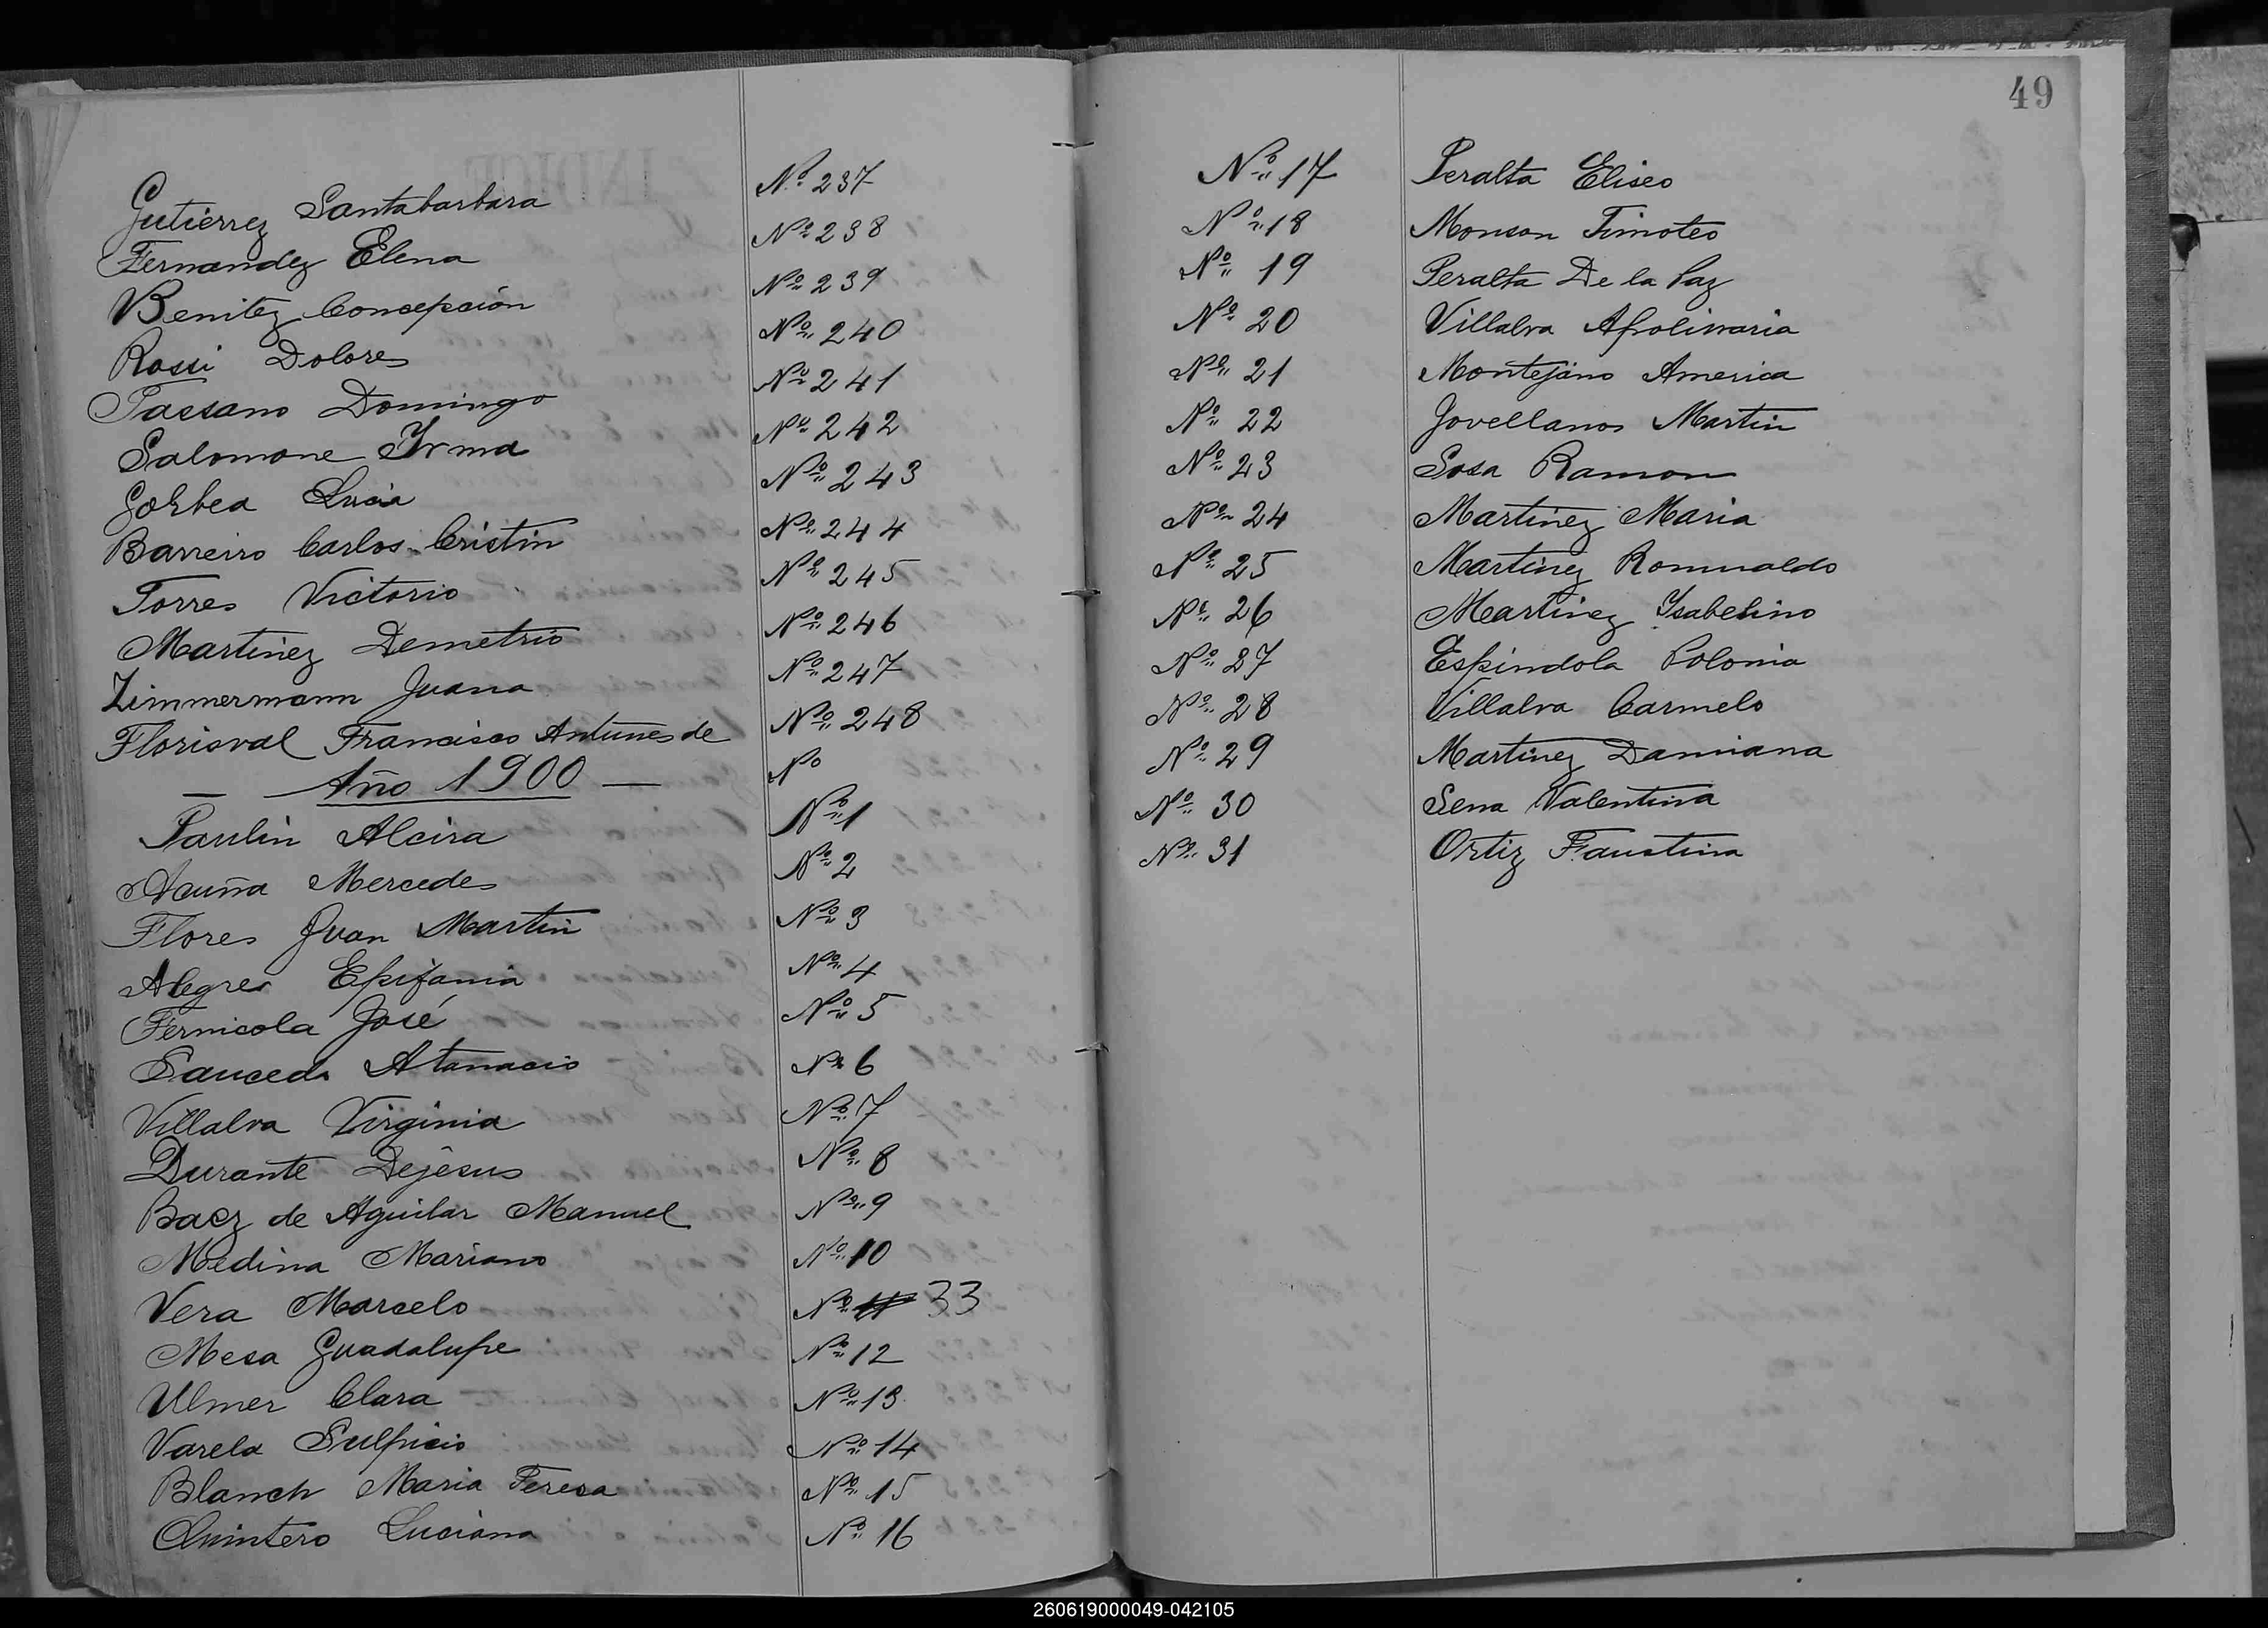 Gutiérrez Santabarbara Nº 237
Fernandez Elena Nº 238
Benitez Concepción Nº 239
Rossi Dolores Nº 240
Tassano Domingo Nº 241
Salomone Irma Nº 242
Gorbea Lucia Nº 243
Barreiro Carlos Cristin Nº 244
Torres Victorio Nº 245
Martinez Demetrio Nº 246
Zimmermann Juana Nº 247
Florisval Francisco Antunes de Nº 248
— Año 1900 — Nº
Paulin Alcira Nº 1
Acuña Mercedes Nº 2
Flores Juan Martin Nº 3
Alegre Epifania Nº 4
Fernicola José Nº 5
Saucedo Atanacio Nº 6
Villalva Virginia Nº 7
Durante Dejesus Nº 8
Baez de Aguilar Manuel Nº 9
Medina Mariano Nº 10
Vera Marcelo Nº 11 33
Mesa Guadalupe Nº 12
Ulmer Clara Nº 13
Varela Sulpicio Nº 14
Blanch Maria Teresa Nº 15
Quintero Luciana Nº 16
49
Nº 17 Peralta Eliseo
Nº 18 Monson Timoteo
Nº 19 Peralta De la Paz
Nº 20 Villalva Apolinaria
Nº 21 Montejano America
Nº 22 Jovellanos Martin
Nº 23 Sosa Ramon
Nº 24 Martinez Maria
Nº 25 Martinez Romualdo
Nº 26 Martinez Isabelino
Nº 27 Espindola Polonia
Nº 28 Villalva Carmelo
Nº 29 Martinez Damiana
Nº 30 Sena Valentina
Nº 31 Ortiz Faustina
260619000049-042105